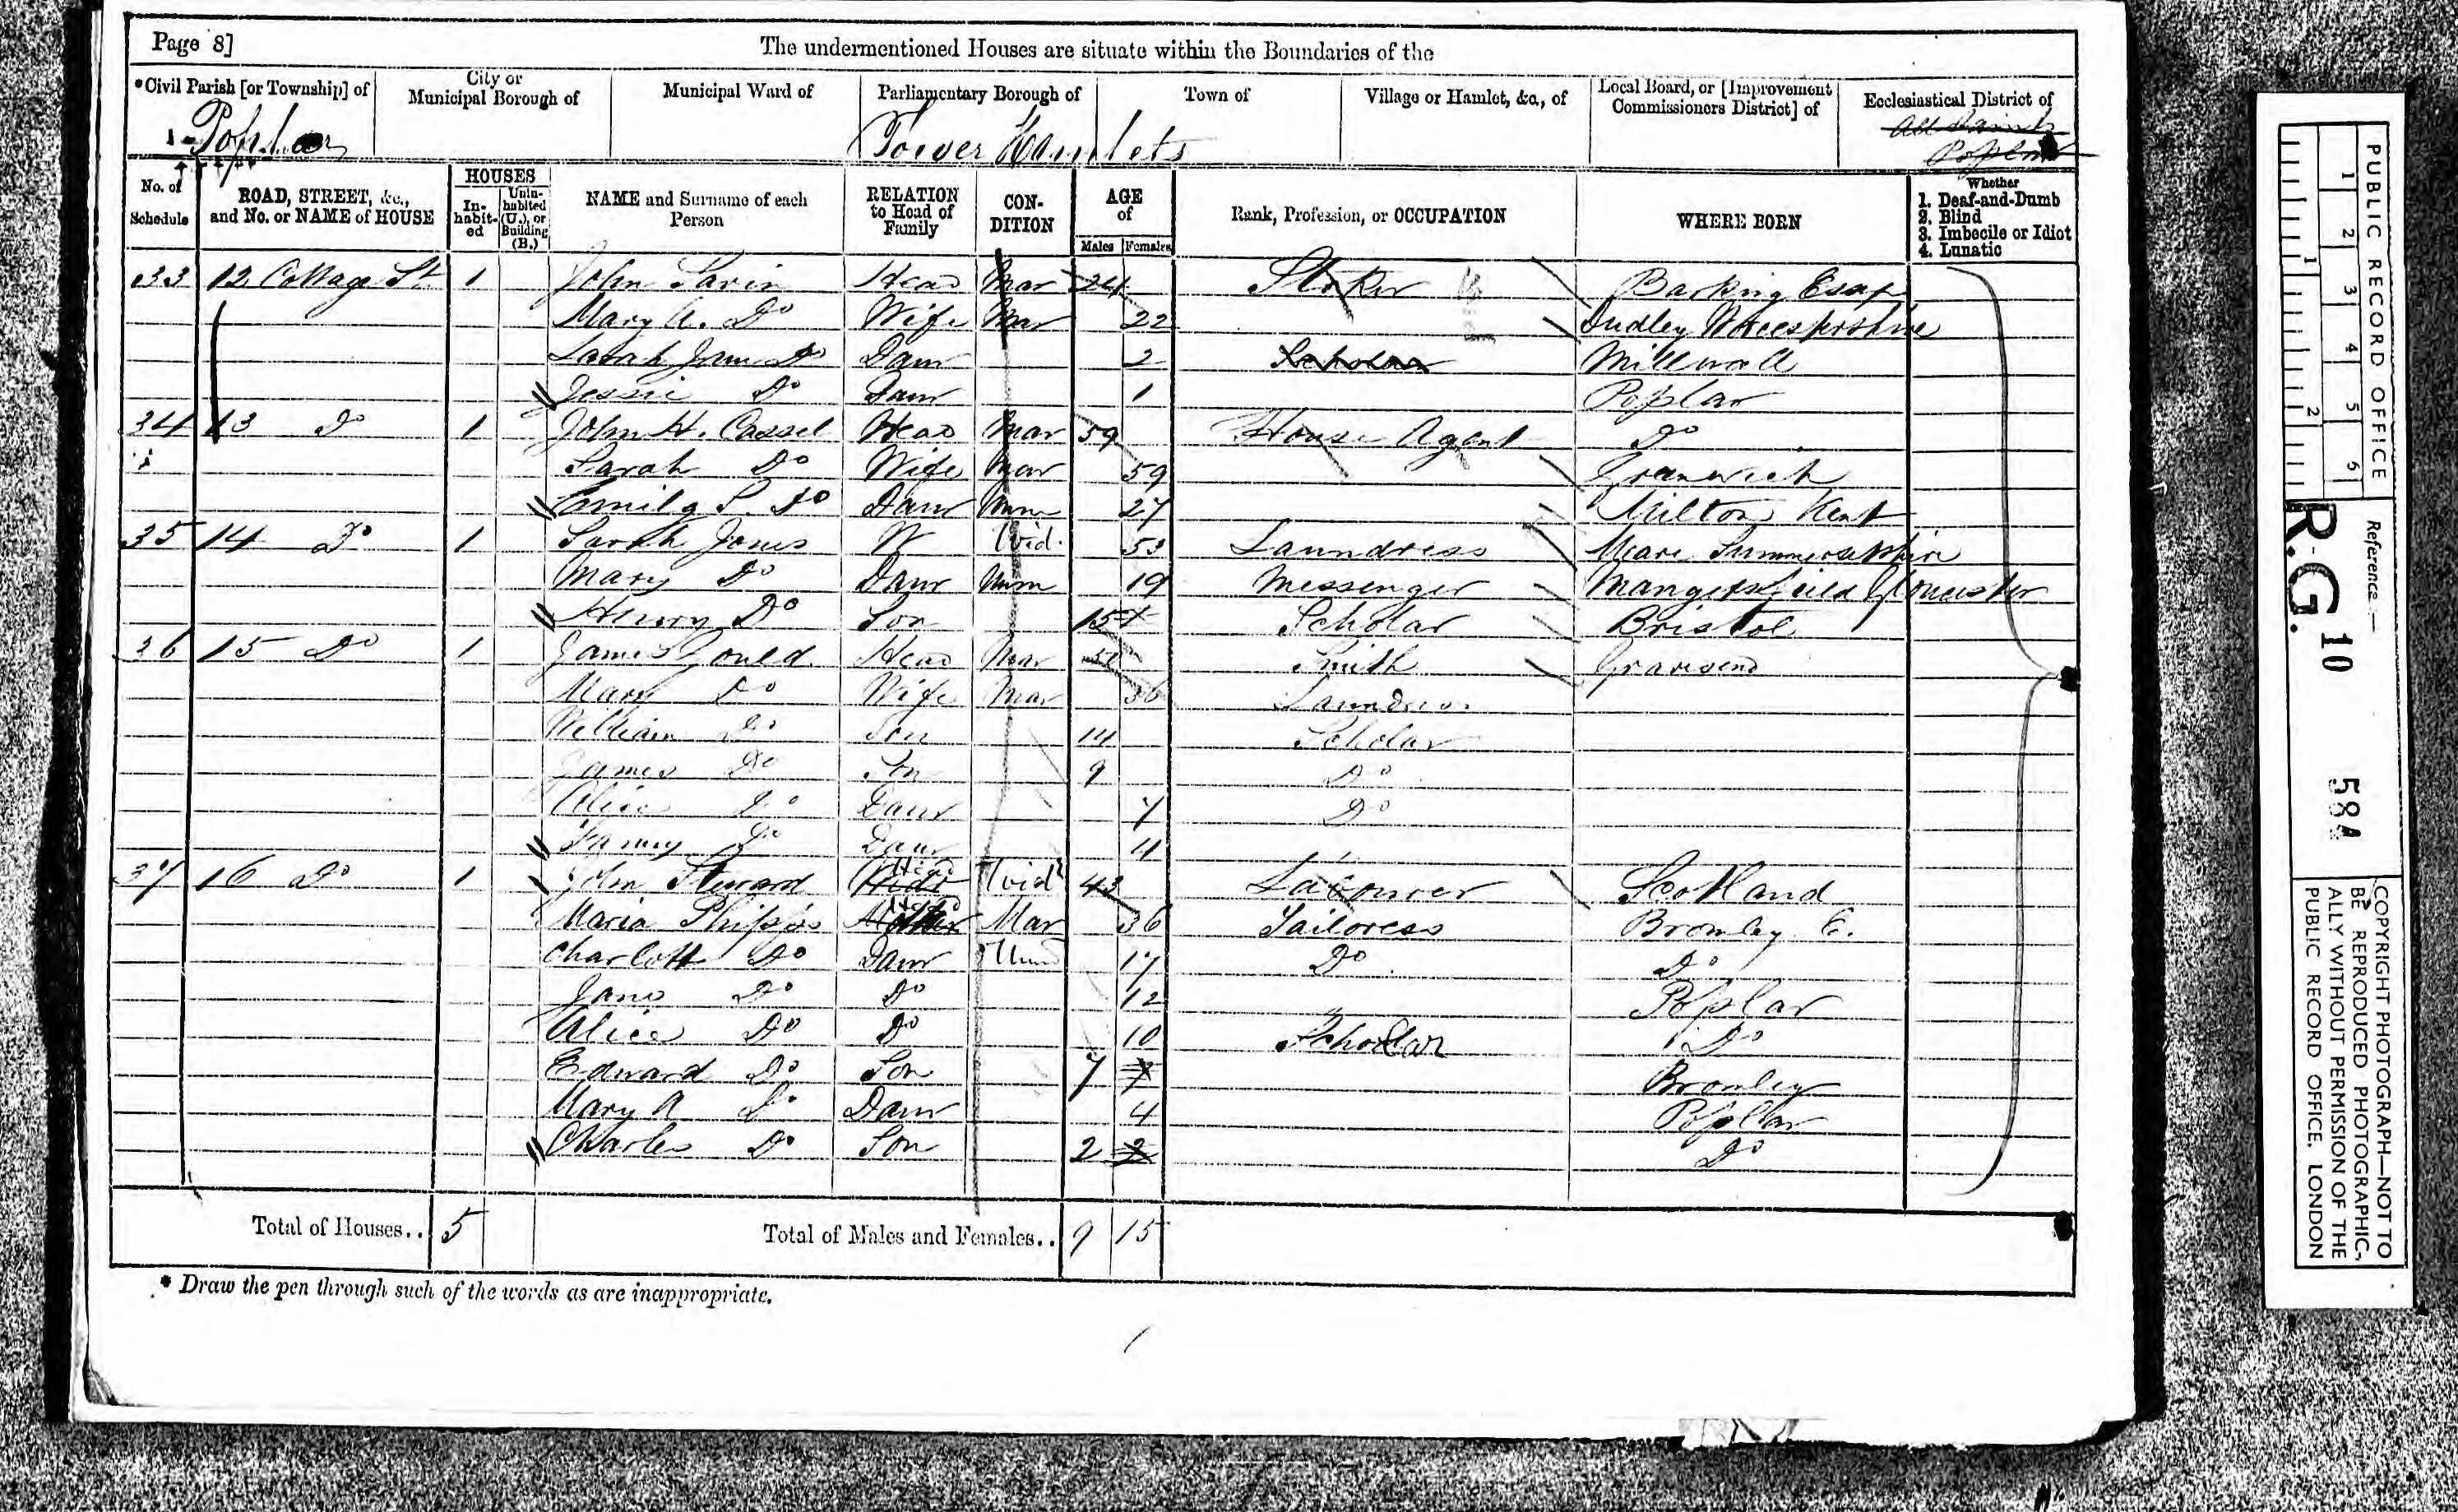 Page 8]
The undermentioned Houses are situate within the Boundaries of the
*Civil Parish [or Township] of
City or Municipal Borough of
Municipal Ward of
Parliamentary Borough of
Town of
Village or Hamlet, &c., of
Local Board, or [Improvement Commissioners District] of
Ecclesiastical District of
Poplar Tower Hamlets All Saints Poplar
No. of Schedule
ROAD, STREET, &c., and No. or NAME of HOUSE
HOUSES
Inhabited
Uninhabited (U.), or Building (B.)
NAME and Surname of each Person
RELATION to Head of Family
CONDITION
AGE of
Males Females
Rank, Profession, or OCCUPATION
WHERE BORN
Whether
1. Deaf-and-Dumb
2. Blind
3. Imbecile or Idiot
4. Lunatic
33 12 Cottage St 1 John Savin Head Mar 24 Stoker Barking Essex
Mary A. Do Wife Mar 22 Dudley Worcestershire
Sarah Jane Do Daur 2 Scholar Millwall
Jessie Do Daur 1 Poplar
34 13 Do 1 John H. Cassel Head Mar 59 House Agent Do
Sarah Do Wife Mar 59 Greenwich
Emily S. Do Daur Unm 27 Milton Kent
35 14 Do 1 Sarah Jones W Wid. 53 Laundress Meare Summersetshire
Mary Do Daur Unm 19 Messenger Mangersfield Gloucester
Henry Do Son 15 Scholar Bristol
36 15 Do 1 James Gould Head Mar Smith Gravesend
Mary Do Wife Mar 36 Laundress
William Do Son 14 Scholar
James Do Son 9 Do
Alice Do Daur 7 Do
Fanny Do Daur 4
37 16 Do 1 John Steward Head Widr 43 Labourer Scotland
Maria Phipps Head Mar 36 Tailoress Bromley E.
Charlott Do Daur Unm 17 Do Do
Jane Do Do 12 Poplar
Alice Do Do 10 Schollar Do
Edward Do Son 7 Bromley
Mary A Do Daur 4 Poplar
Charles Do Son 2 2 Do
Total of Houses.. 5 Total of Males and Females.. 9 15
* Draw the pen through such of the words as are inappropriate.
PUBLIC RECORD OFFICE
1 2 3 4 5 6
1 2
Reference:-
R.G. 10 584
COPYRIGHT PHOTOGRAPH—NOT TO
BE REPRODUCED PHOTOGRAPHIC-
ALLY WITHOUT PERMISSION OF THE
PUBLIC RECORD OFFICE, LONDON